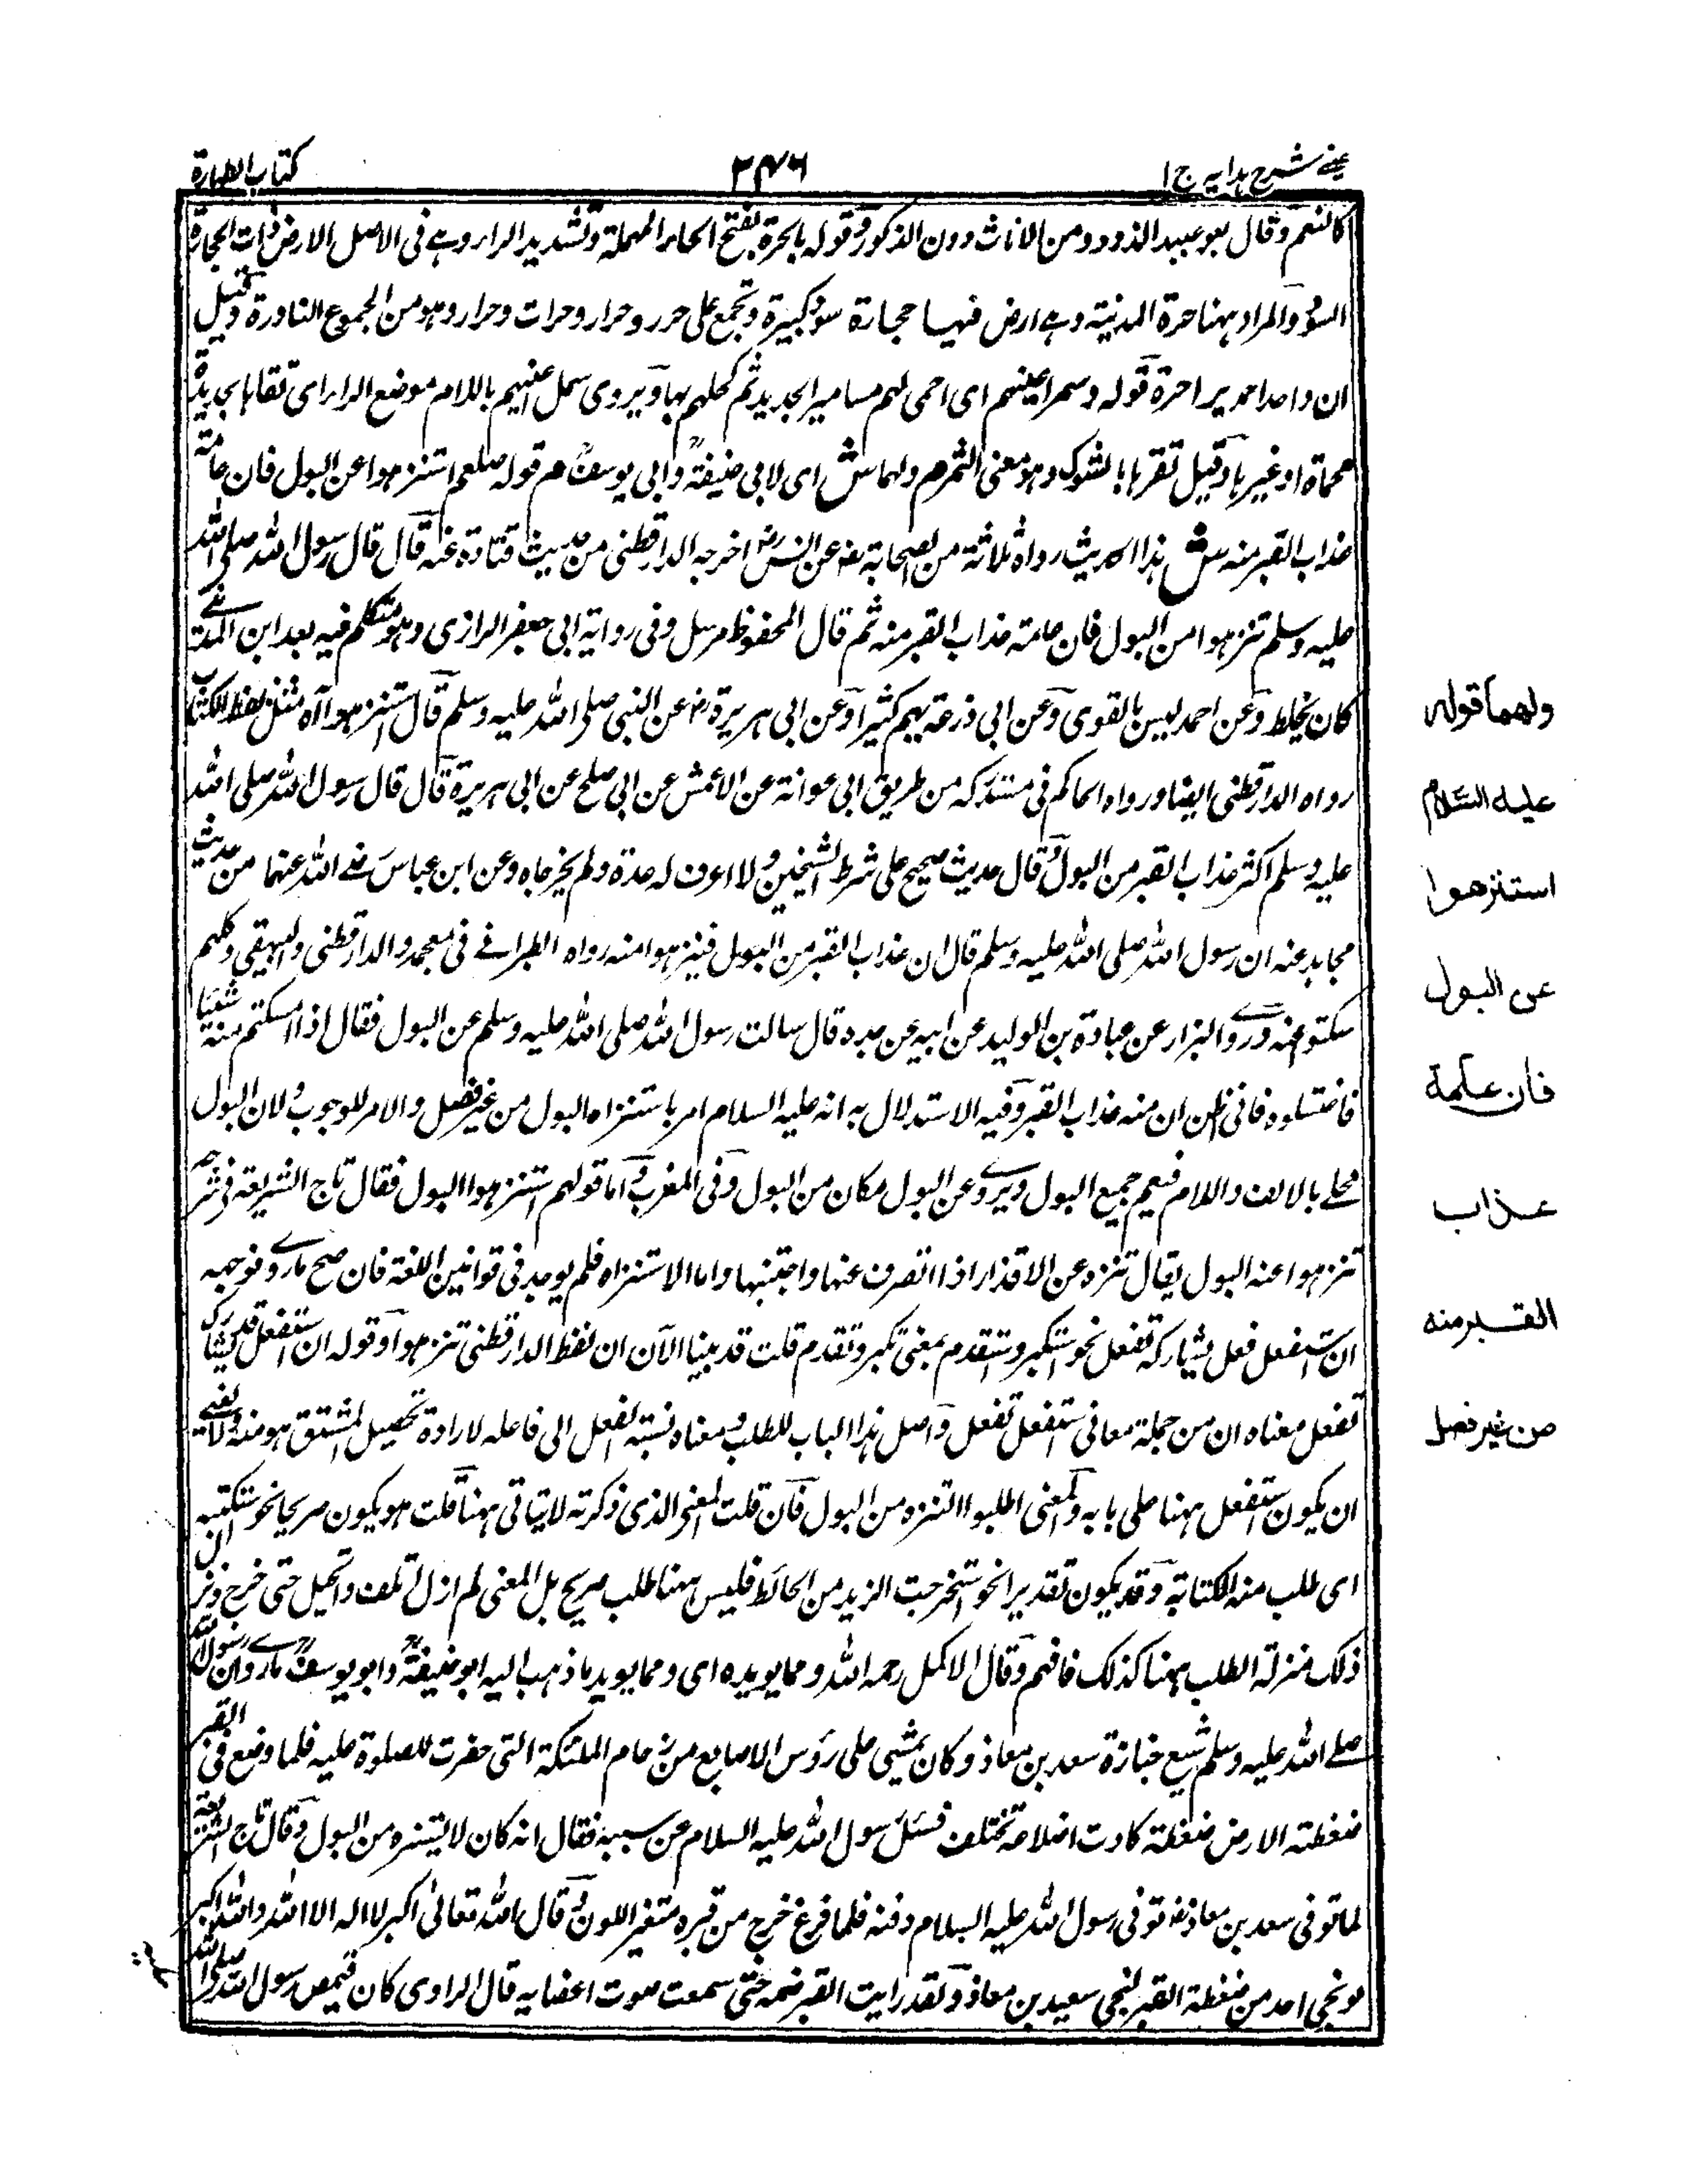 عینی شرح ہدایہ ج ۱
۲۴۶
کتاب الطہارة
کالنعم وقال ابو عبید الذود من الاناث دون الذکور وقوله بالحرة بفتح الحاء المهملة وتشدید الراء وهی فی الاصل الارض ذات الحجارة
السود والمراد ههنا حرة المدینة وهی ارض فیها حجارة سود کبیرة وتجمع علی حرر وحرار وحرات وحرار وهو من الجموع النادرة وقیل
ان واحد احرین احرة قوله وسمر اعینهم ای احمی لهم مسامیر الحدید ثم کحلهم بها ویروی سمل اعینهم باللام موضع الراء ای فقاها بحدیدة
محماة او غیرها وقیل نقرها بالشوک وهو معنی السمر م ولهما ش ای لابی حنیفة وابی یوسف م قوله صلعم استنزهوا عن البول فان عامة
عذاب القبر منه ش هذا الحدیث رواه ثلاثة من الصحابة رض عن انس رض اخرجه الدارقطنی من حدیث قتادة عنه قال قال رسول الله صلی الله
علیه وسلم تنزهوا من البول فان عامة عذاب القبر منه ثم قال المحفوظ مرسل وفی روایة ابی جعفر الرازی وهو متکلم فیه بعد ابن المدینی
کان یخلط وعن احمد لیس بالقوی وعن ابی زرعة یهم کثیرا وعن ابی هریرة رض عن النبی صلی الله علیه وسلم قال استنزهوا آه مثل لفظ الکتاب
رواه الدارقطنی ایضا ورواه الحاکم فی مستدرکه من طریق ابی عوانة عن الاعمش عن ابی صلح عن ابی هریرة قال قال رسول الله صلی الله
علیه وسلم اکثر عذاب القبر من البول وقال حدیث صحیح علی شرط الشیخین ولا اعرف له علة ولم یخرجاه وعن ابن عباس رضی الله عنهما من حدیث
مجاهد عنه ان رسول الله صلی الله علیه وسلم قال ان عذاب القبر من البول فتنزهوا منه رواه الطبرانی فی معجمه والدارقطنی والبیهقی وکلهم
سکتوا عنه وروی البزار عن عبادة بن الولید عن ابیه عن جده قال سالت رسول الله صلی الله علیه وسلم عن البول فقال اذا مسکتم منه شیئا
فاغتسلوه فانی اظن ان منه عذاب القبر وفیه الاستدلال به انه علیه السلام امر باستنزاه البول من غیر فصل والامر للوجوب ولان البول
محلی بالالف واللام فیعم جمیع البول ویروی عن البول مکان من البول وفی المغرب اما قولهم استنزهوا البول فقال تاج الشریعة فی شرحه
تنزهوا عنه البول یقال تنزه عن الاقذار اذا انصرف عنها واجتنبها واما الاستنزاه فلم یوجد فی قوانین اللغة فان صح ما روی فوجهه
ان استفعل فعل یشارکه تفعل نحو استکبر واستقدم بمعنی تکبر وتقدم قلت قد بینا الآن ان لفظ الدارقطنی تنزهوا وقوله ان استفعل قد یشارک
تفعل معناه ان من جملة معانی استفعل تفعل واصل هذا الباب للطلب ومعناه نسبة الفعل الی فاعله لارادة تحصیل المشتق هو منه ولا ینفی
ان یکون استفعل ههنا علی بابه والمعنی اطلبوا التنزه من البول فان قلت المعنی الذی ذکرته لا یتاتی ههنا قلت هو یکون صریحا نحو استکتبته
ای طلب منه الکتابة وقد یکون تقدیرا نحو استخرجت الوتد من الحائط فلیس ههنا طلب صریح بل المعنی لم ازل اتلطف واتحیل حتی خرج ونزل
ذلک منزلة الطلب ههنا کذلک فافهم وقال الاکمل رحمه الله ومما یویده ای ومما یوید ما ذهب الیه ابو حنیفة وابو یوسف ما روی ان رسول الله
صلی الله علیه وسلم شیع جنازة سعد بن معاذ وکان یمشی علی رؤس الاصابع من زحام الملئکة التی حضرت للصلوة علیه فلما وضع فی القبر
ضغطته الارض ضغطة کادت اضلاعه تختلف فسئل رسول الله علیه السلام عن سببه فقال انه کان لا یستنزه من البول وقال تاج الشریعة
لما توفی سعد بن معاذ رض توفی رسول الله علیه السلام دفنه فلما فرغ خرج من قبره متغیر اللون قال الله تعالی اکبر لا اله الا الله والله اکبر
لو نجی احد من ضغطة القبر لنجی سعید بن معاذ ولقد رایت القبر ضمه حتی سمعت صوت اعضایه قال الراوی کان قمیص رسول الله صلی الله
ولهما قوله
علیه السّلام
استنزهوا
عن البول
فان عامة
عذاب
القبر منه
من غیر فصل